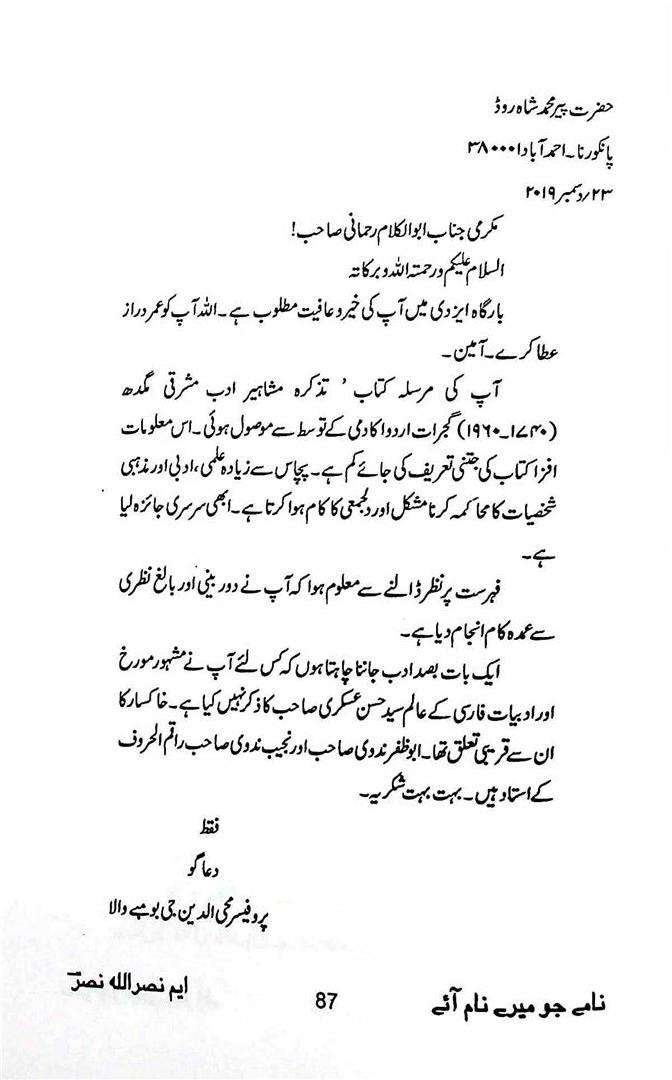 حضرت پیر محمد شاہ روڈ
پانکورنا۔ احمد آباد ۳۸۰۰۰۱
۲۳؍دسمبر ۲۰۱۹
مکرمی جناب ابوالکلام رحمانی صاحب!
السلام علیکم ورحمتہ اللہ وبرکاتہ
بارگاہ ایزدی میں آپ کی خیر و عافیت مطلوب ہے۔ اللہ آپ کو عمر دراز
عطا کرے۔ آمین۔
آپ کی مرسلہ کتاب ’ تذکرہ مشاہیر ادب مشرقی مگدھ
(۱۷۴۰۔۱۹۶۰) گجرات اردو اکادمی کے توسط سے موصول ہوئی۔ اس معلومات
افزا کتاب کی جتنی تعریف کی جائے کم ہے۔ پچاس سے زیادہ علمی، ادبی اور مذہبی
شخصیات کا محاکمہ کرنا مشکل اور دلجمعی کا کام ہوا کرتا ہے۔ ابھی سرسری جائزہ لیا
ہے۔
فہرست پر نظر ڈالنے سے معلوم ہوا کہ آپ نے دور بینی اور بالغ نظری
سے عمدہ کام انجام دیا ہے۔
ایک بات بصد ادب جاننا چاہتا ہوں کہ کس لئے آپ نے مشہور مورخ
اور ادبیات فارسی کے عالم سید حسن عسکری صاحب کا ذکر نہیں کیا ہے۔ خاکسار کا
ان سے قریبی تعلق تھا۔ ابوظفر ندوی صاحب اور نجیب ندوی صاحب راقم الحروف
کے استاد ہیں۔ بہت بہت شکریہ۔
فقط
دعا گو
پروفیسر محی الدین جی بومبے والا
نامے جو میرے نام آئے 87 ایم نصر اللہ نصرؔ